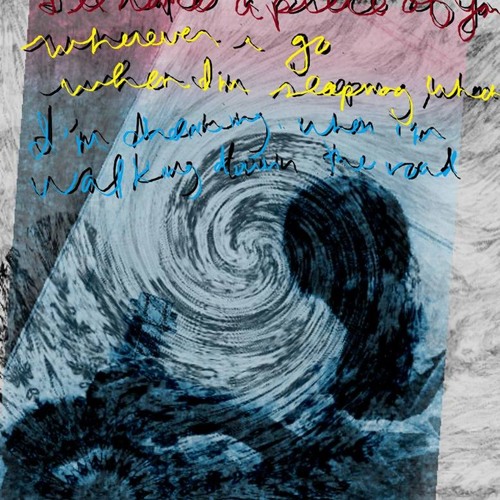 a piece of you
wherever i go
when I'm sleeping, when
I'm dreaming, when i'm
walking down the road